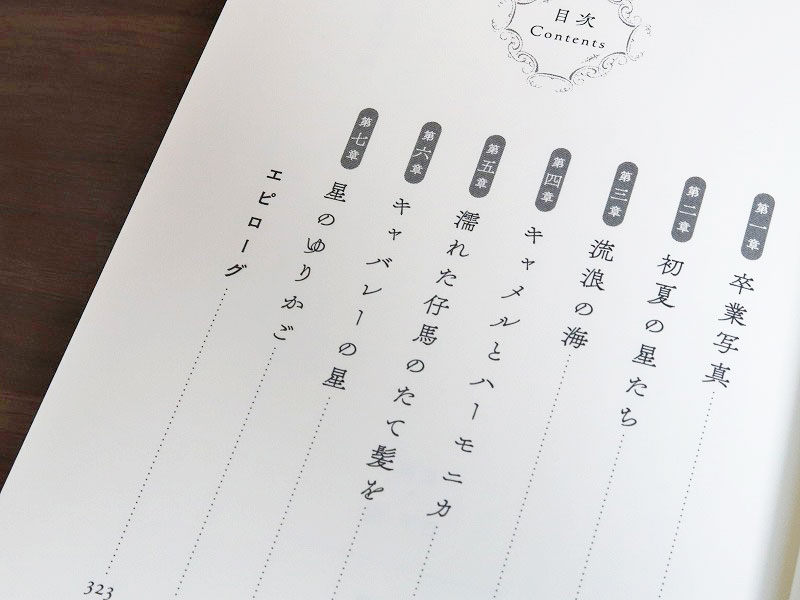 目次
Contents
第一章 卒業写真
第二章 初夏の星たち
第三章 流浪の海
第四章 キャメルとハーモニカ
第五章 濡れた仔馬のたて髪を
第六章 キャバレーの星
第七章 星のゆりかご
エピローグ 323